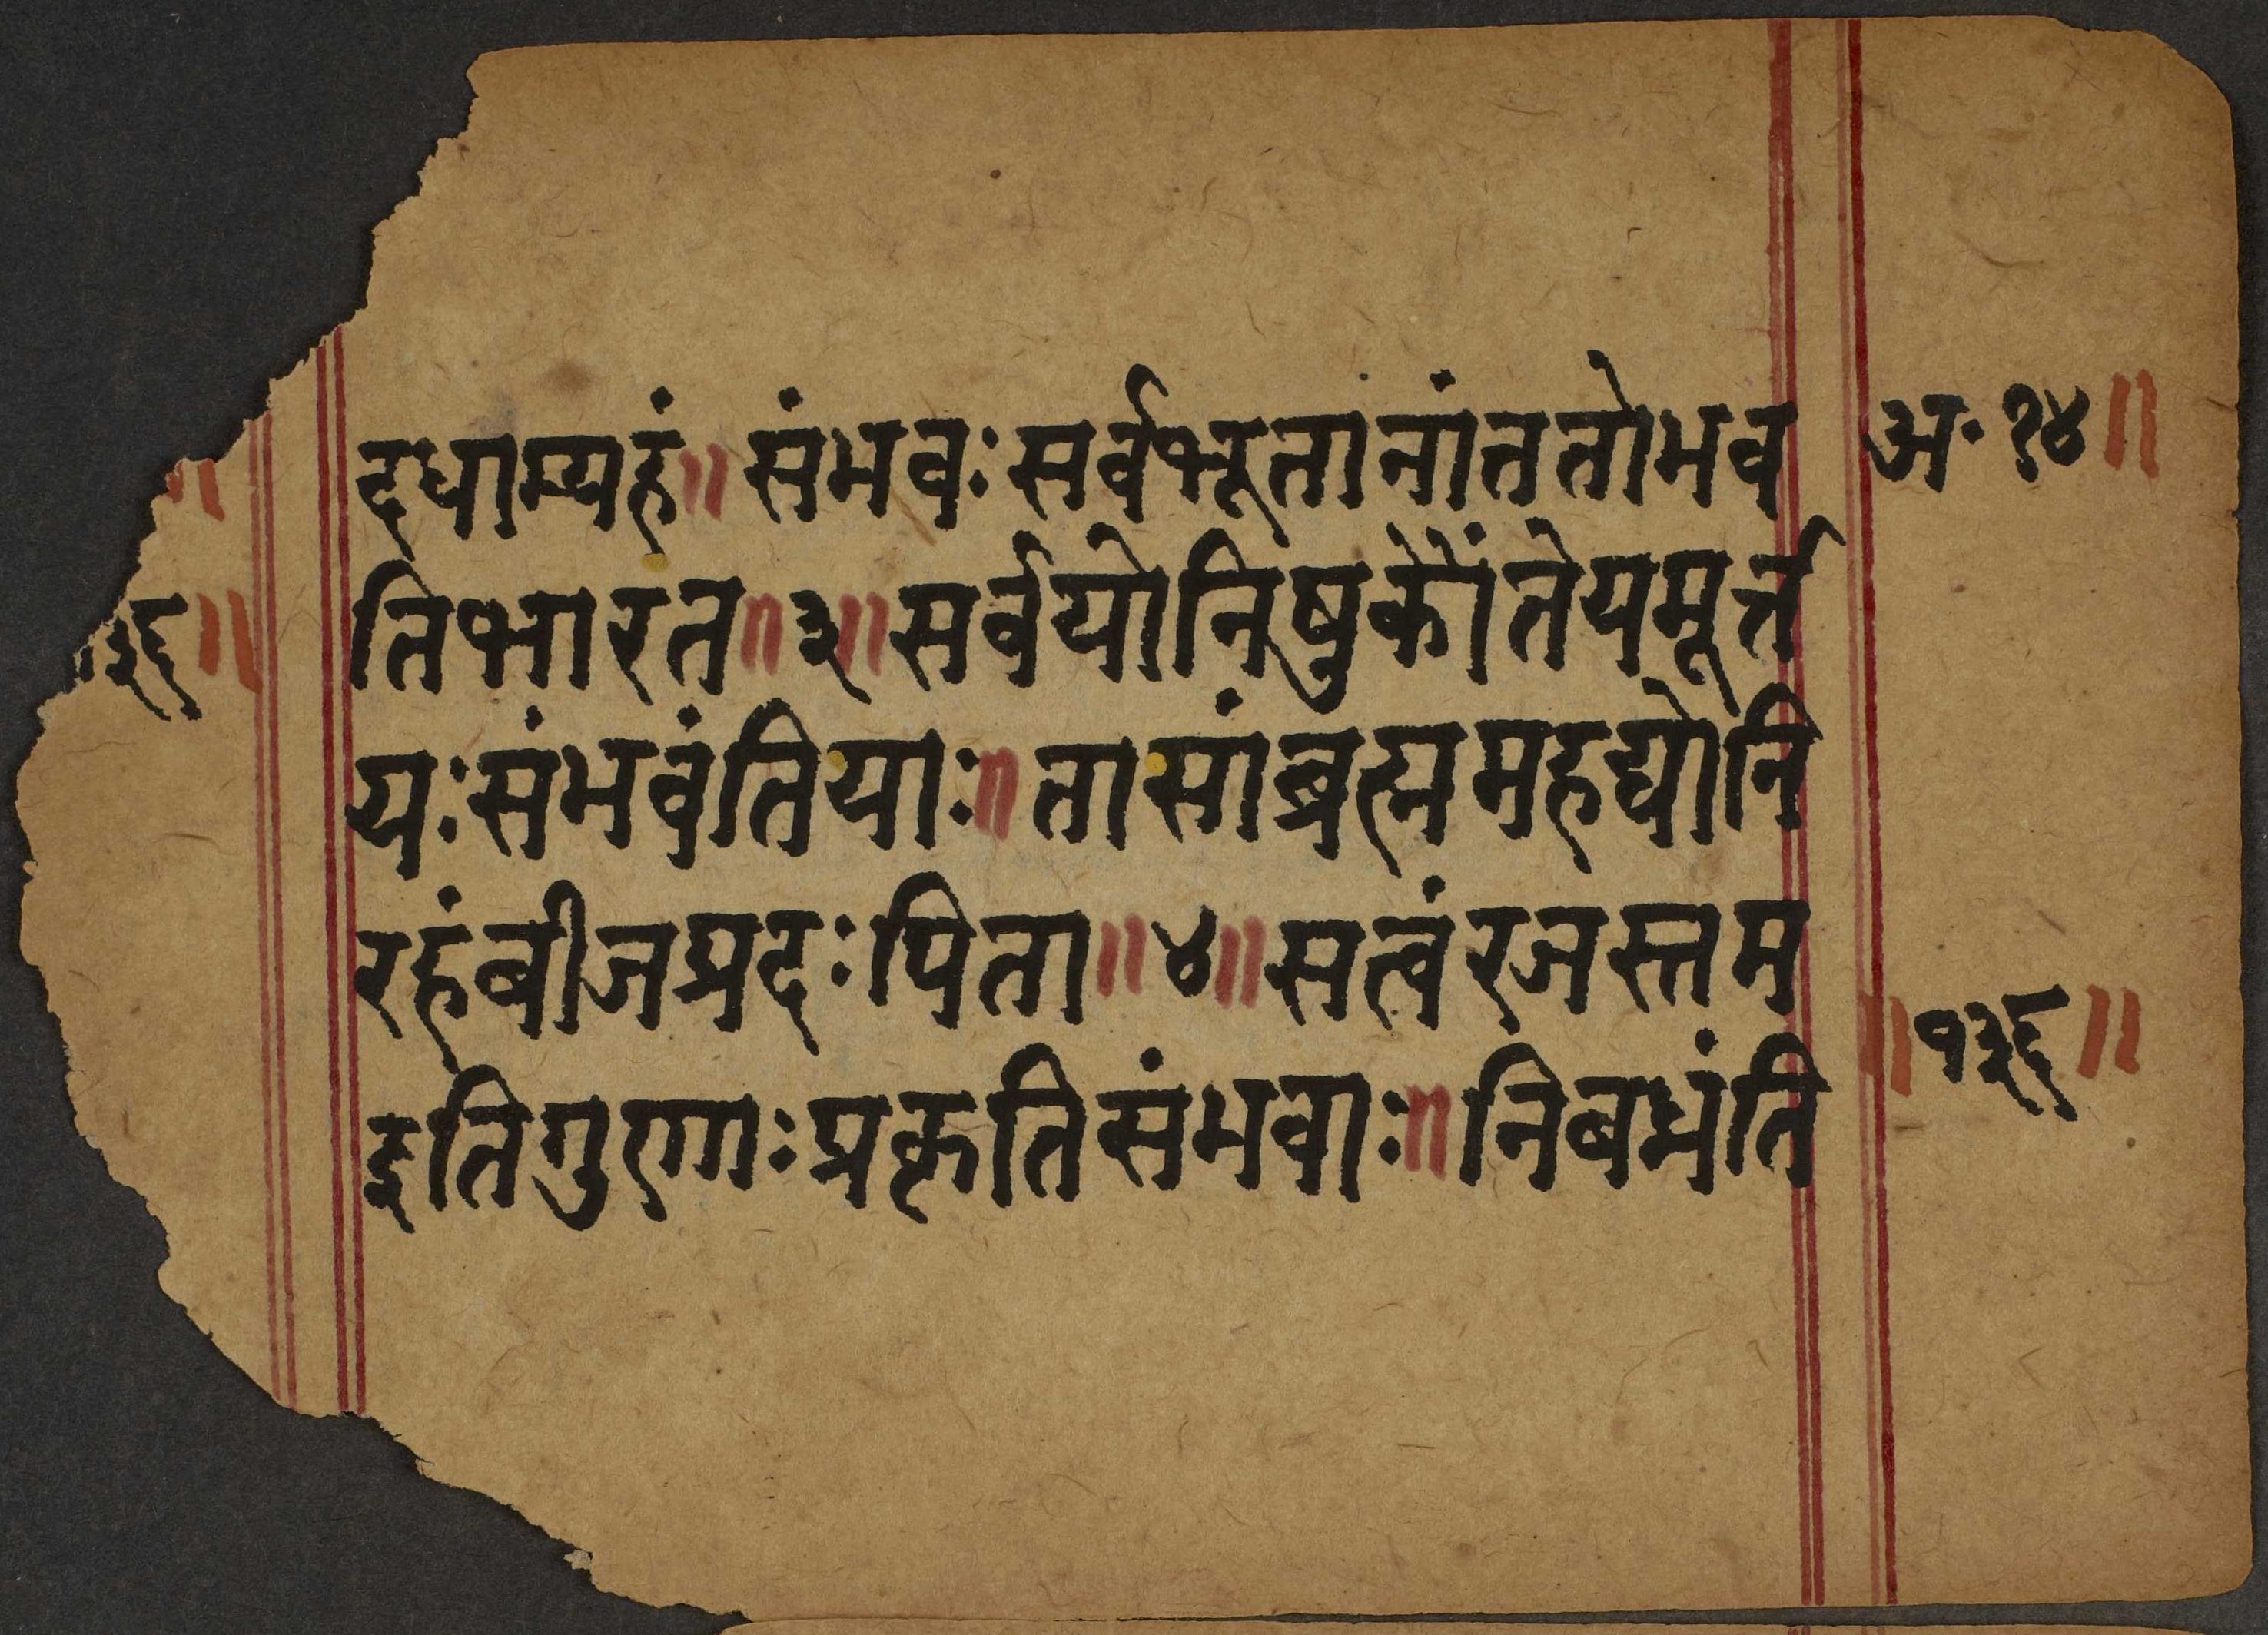 दधाम्यहं॥ संभवः सर्वभूतानांततोभव
अ॰ १४॥
॥
तिभारत॥ ३॥ सर्वयोनिषुकौंतेयमूर्त्त
३६॥
यः संभवंतियाः॥ तासांब्रह्ममहद्योनि
रहंबीजप्रदः पिता॥ ४॥ सत्वंरजस्तम
॥ १३६॥
इतिगुणाः प्रकृतिसंभवाः॥ निबध्नंति